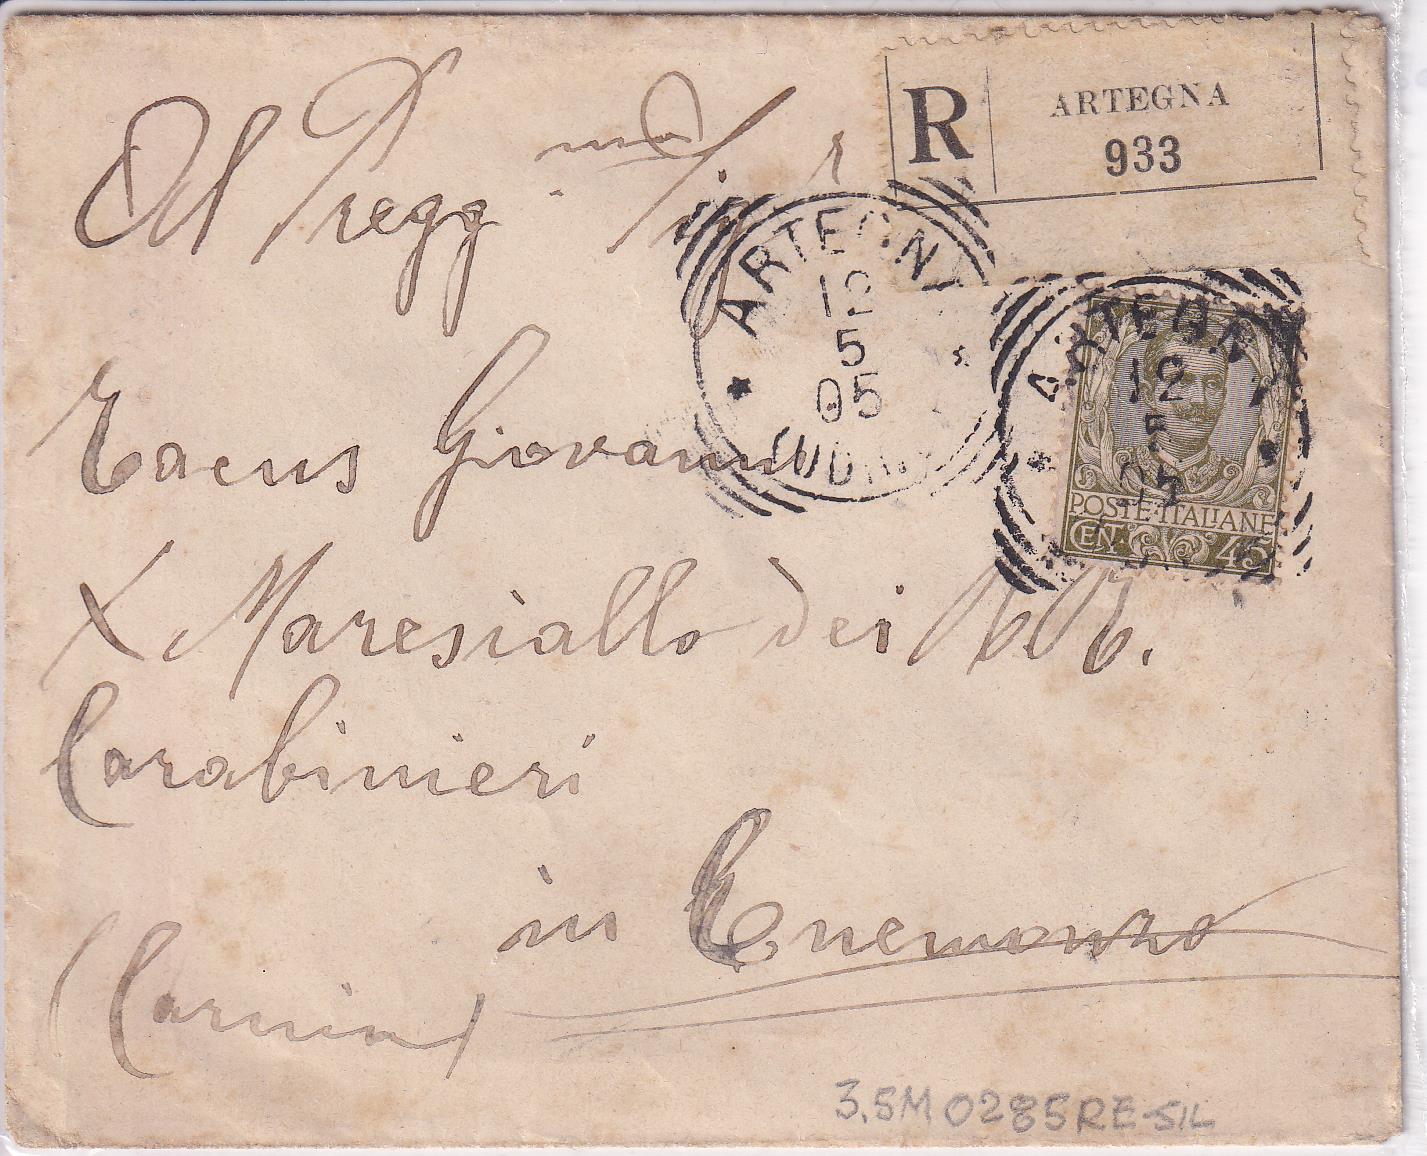 R
ARTEGNA
933
Al Pregg.mo Sigr
ARTEGNA
12
5
05
UDINE
ARTEGNA
12
5
05
POSTE·ITALIANE
CEN. 45
Giovanni
X Maresiallo dei RR.
Carabinieri
in Enemonzo
(Carnia)
3.5M 0285RE-SIL